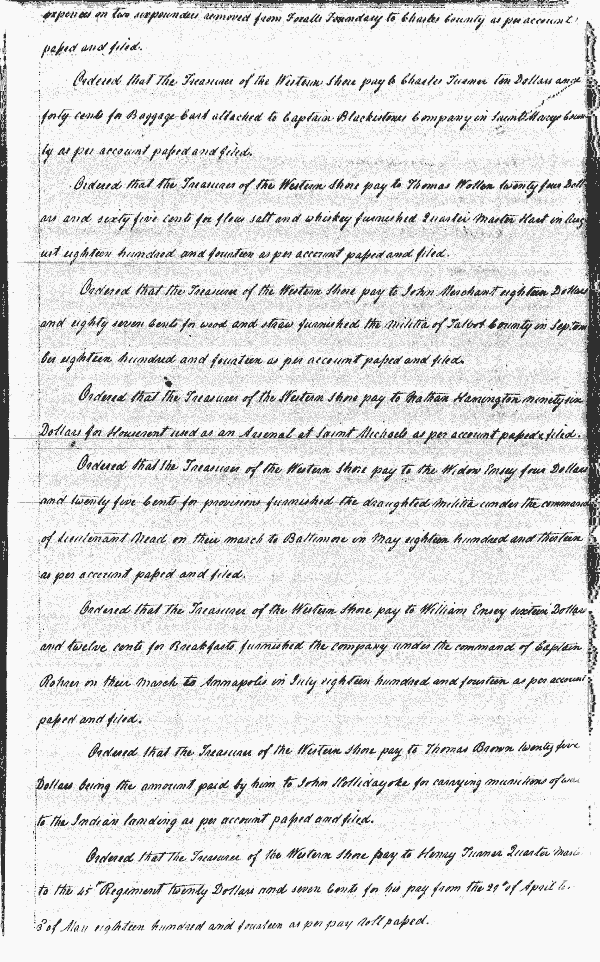 expences on two sixpounders removed from Foxalls Foundary to Charles County as per account
passed and filed.
Ordered that the Treasurer of the Western Shore pay to Charles Turner ten Dollars and
forty cents for Baggage Cart attached to Captain Blackestones Company in Saint Marys Coun
ty as per account passed and filed.
Ordered that the Treasurer of the Western Shore pay to Thomas Wollen twenty four Doll
ars and sixty five cents for flour salt and whiskey furnished Quarter Master Hart in Aug
ust eighteen hundred and fourteen as per account passed and filed.
Ordered that the Treasurer of the Western Shore pay to John Merchant eighteen Dollars
and eighty seven Cents for wood and straw furnished the militia of Talbot County in Septem
ber eighteen hundred and fourteen as per account passed and filed.
Ordered that the Treasurer of the Western Shore pay to Nathan Harrington ninety six
Dollars for Houserent used as an Arsenal at Saint Michaels as per account passed & filed.
Ordered that the Treasurer of the Western Shore pay to the Widow Ensey four Dollars
and twenty five Cents for provisions furnished the draughted Militia under the command
of Lieutenant Nead on their march to Baltimore in May eighteen hundred and thirteen
as per account passed and filed.
Ordered that the Treasurer of the Western Shore pay to William Ensey sixteen Dollars
and twelve cents for Breakfasts furnished the company under the command of Captain
Rohrer on their march to Annapolis in July eighteen hundred and fourteen as per account
passed and filed.
Ordered that the Treasurer of the Western Shore pay to Thomas Brown twenty five
Dollars being the amount paid by him to John Hollidayoke for carrying munitions of war
to the Indian landing as per account passed and filed.
Ordered that the Treasurer of the Western Shore pay to Henry Turner Quarter Master
to the 45th Regiment twenty Dollars and seven Cents for his pay from the of April to
of May eighteen hundred and fourteen as per pay roll passed.